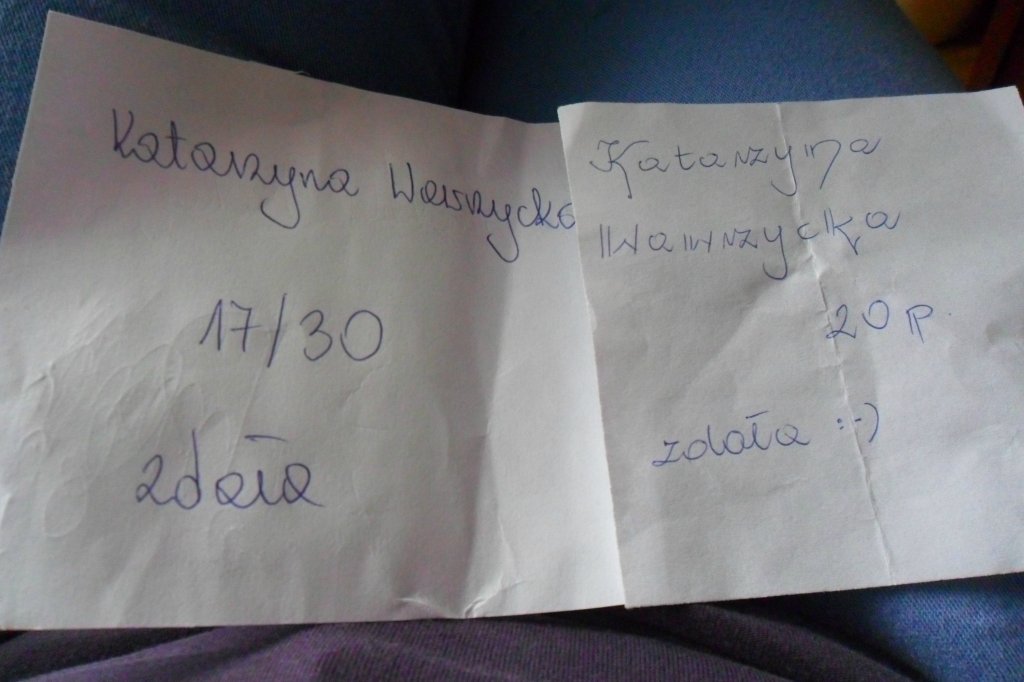 Katarzyna Wawrzycka
17/30
zdała
Katarzyna
Wawrzycka
20 p.
zdała :-)